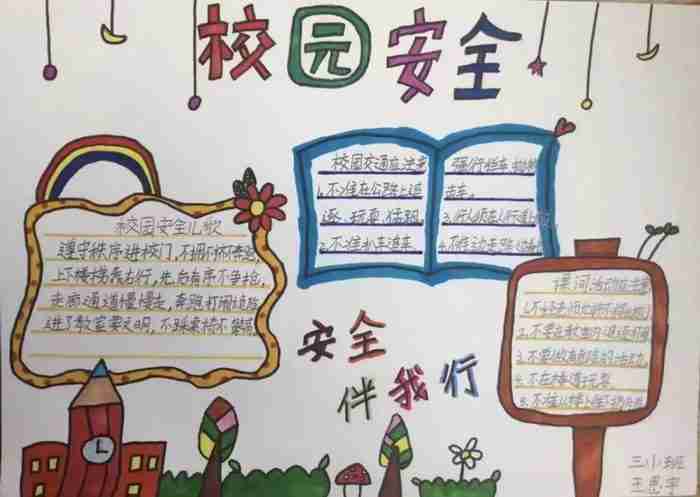 校园安全
校园安全儿歌
遵守秩序进校门,不拥不挤不奔跑,
上下楼梯靠右行,先后有序不争抢,
走廊通道慢慢走,奔跑打闹
进了教室要文明,不踩桌椅不
校园交通应注意
1.不准在公路上追
逐、玩耍、猛跑。
2.不准扒车、追车、
强行拦车、
走车。
3.行人须走人行道
4.不准
课间活动应注意
1.不
2.不要在教室内追逐打
3.不要做有危险的活动。
4.不在楼道玩耍
5.不准从楼上
安全
伴我行
三小班
王思宇